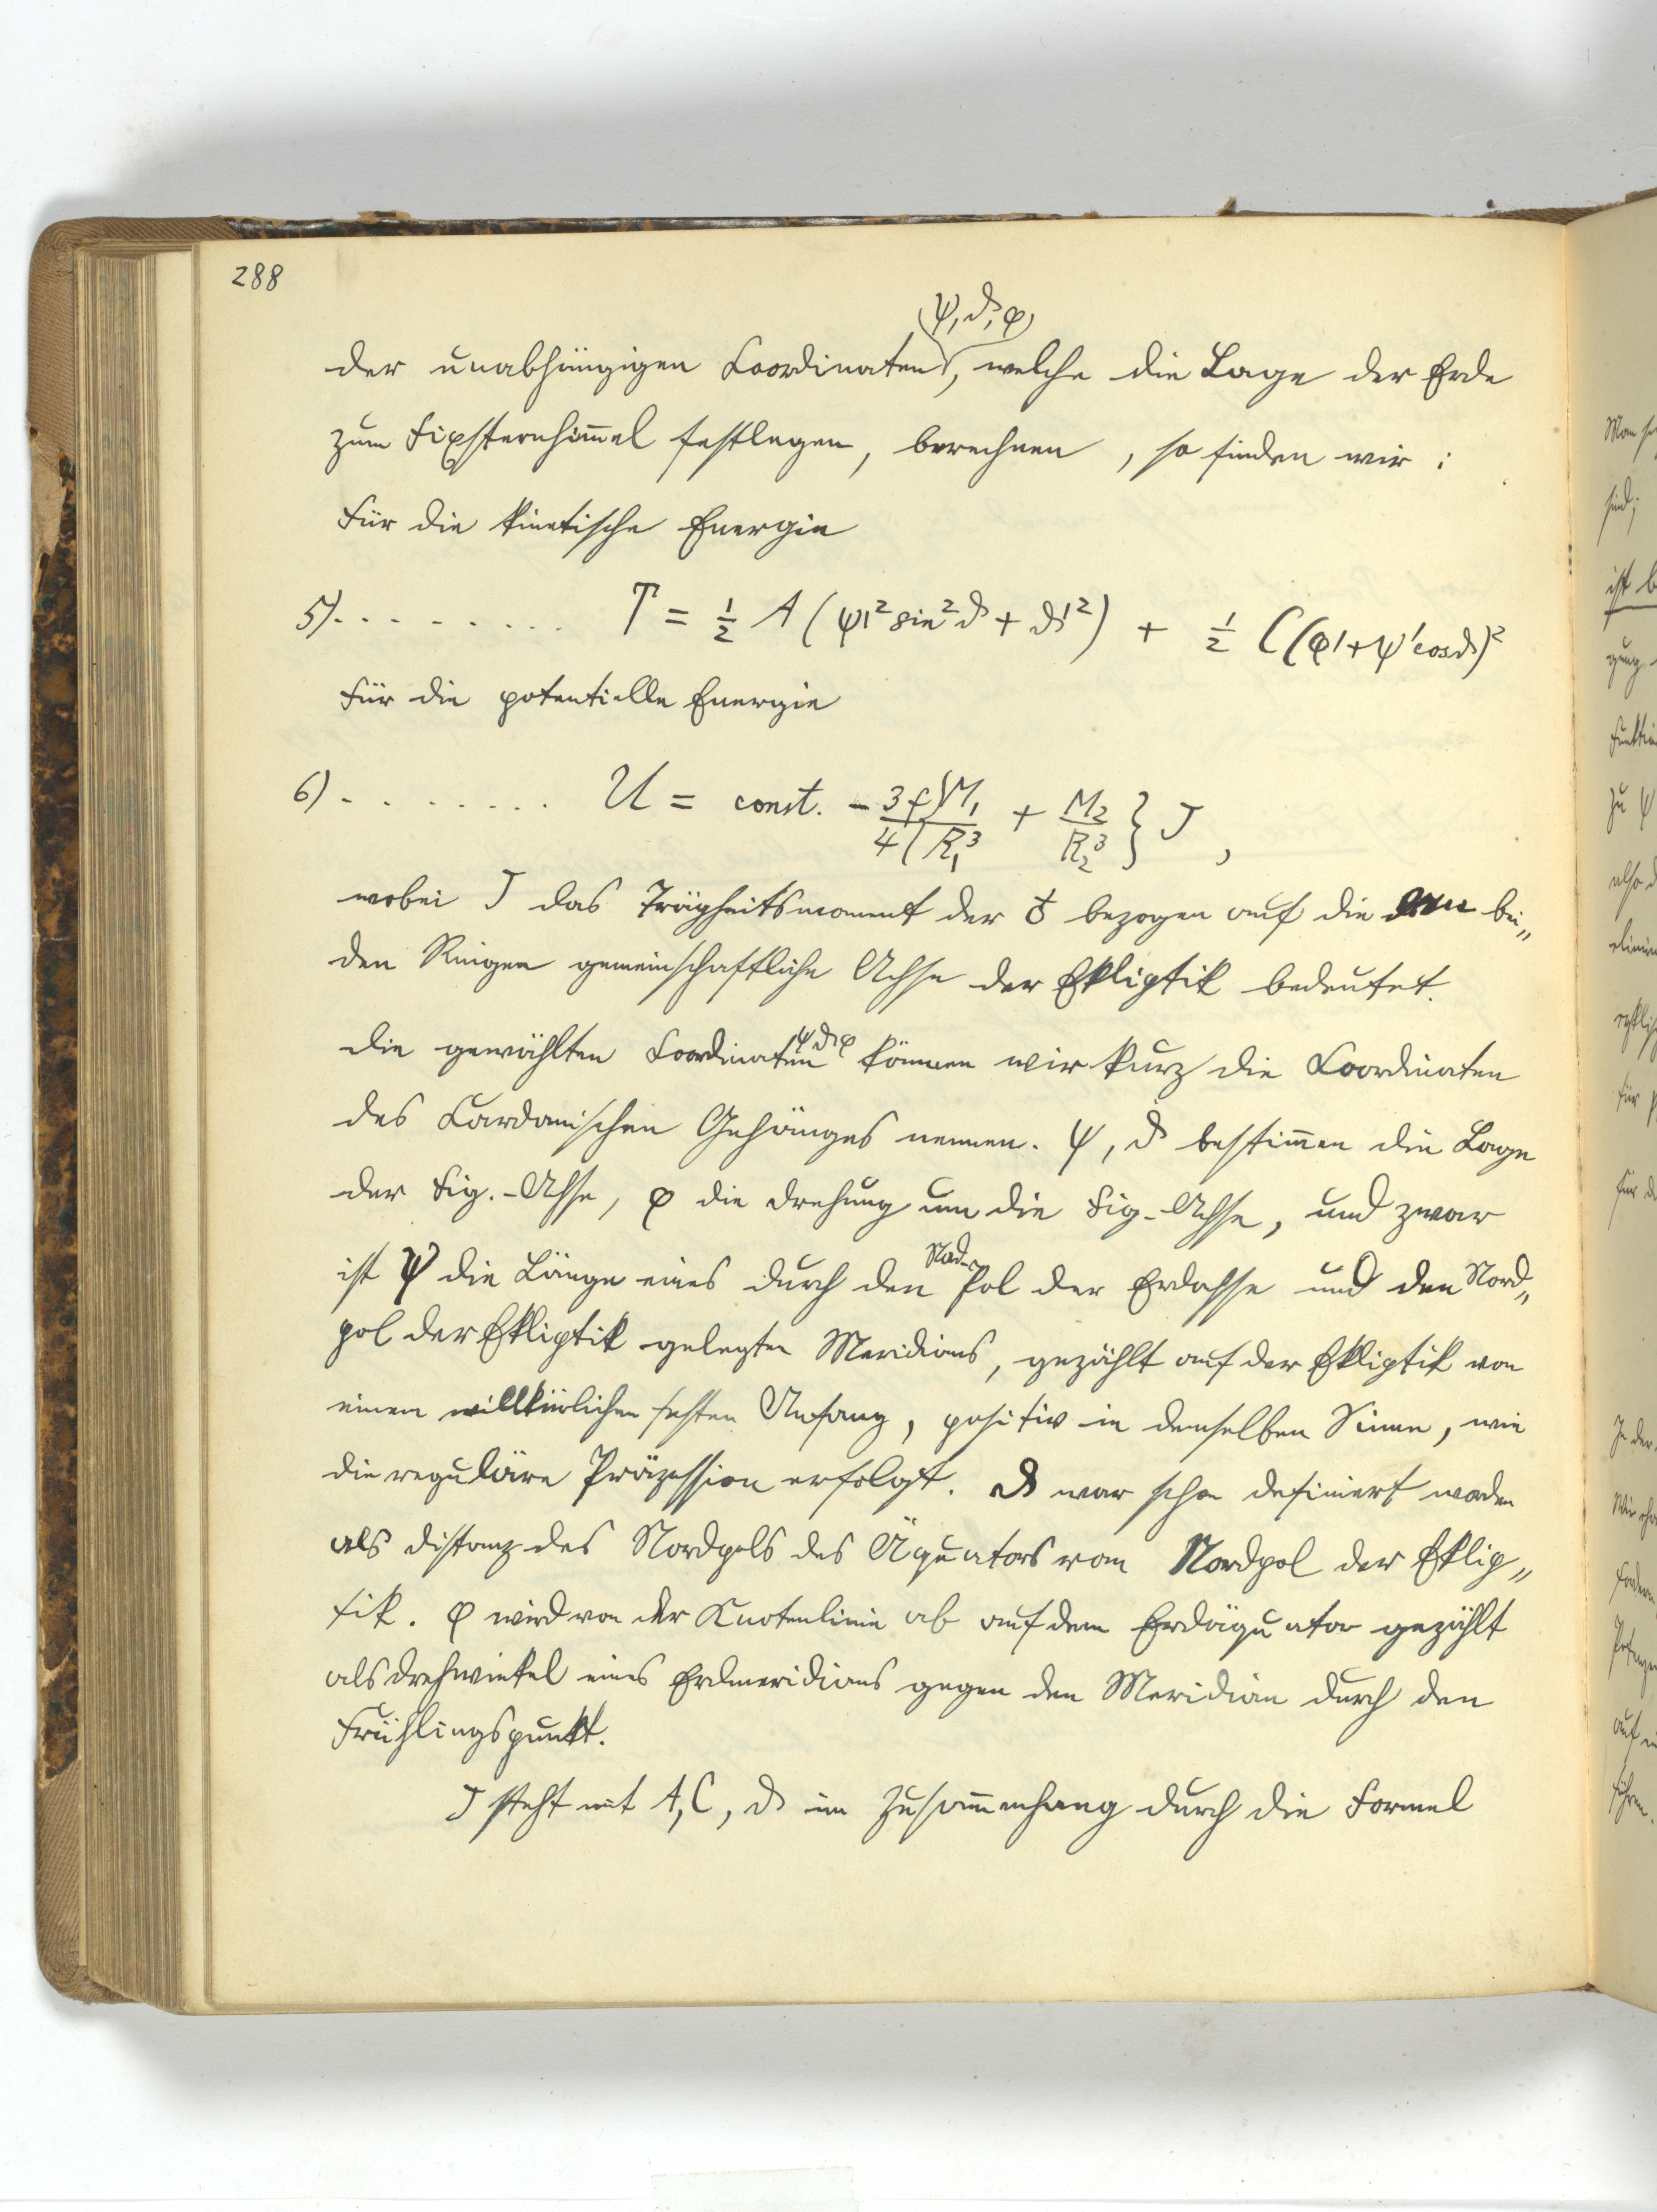 288
(ψ, ϑ, φ)
der unabhängigen Coordinaten, welche die Lage der Erde
zum Fixsternhim̅el festlegen, berechnen, so finden wir:
Für die kinetische Energie
5) . . . . . . . . . T = 1/2 A (ψ'² sin² ϑ + ϑ'²) + 1/2 C (φ' + ψ' cos ϑ)²
Für die potentielle Energie
6) . . . . . . . . U = const. - 3f/4 { M₁/R₁³ + M₂/R₂³ } J,
wobei J das Trägheitsmoment der ♁ bezogen auf die bei„
den Ringen gemeinschaftliche Achse der Ekliptik bedeutet.
Die gewählten Coordinaten ψ ϑ φ können wir kurz die Coordinaten
des Cardanischen Gehänges nennen. ψ, ϑ bestim̅en die Lage
der Fig.-Achse, φ die Drehung um die Fig-Achse, und zwar
ist ψ die Länge eines durch den Nord-Pol der Erdachse und den Nord„
pol der Ekliptik gelegten Meridians, gezählt auf der Ekliptik von
einem willkürlichen festen Anfang, positiv in demselben Sinne, wie
die reguläre Präzession erfolgt. ϑ war schon definiert worden
als Distanz des Nordpols des Äquators vom Nordpol der Eklip„
tik. φ wird von der Knotenlinie ab auf dem Erdäquator gezählt
als Drehwinkel eines Erdmeridians gegen den Meridian durch den
Frühlingspunkt.
J steht mit A, C, ϑ im Zusam̅enhang durch die Formel